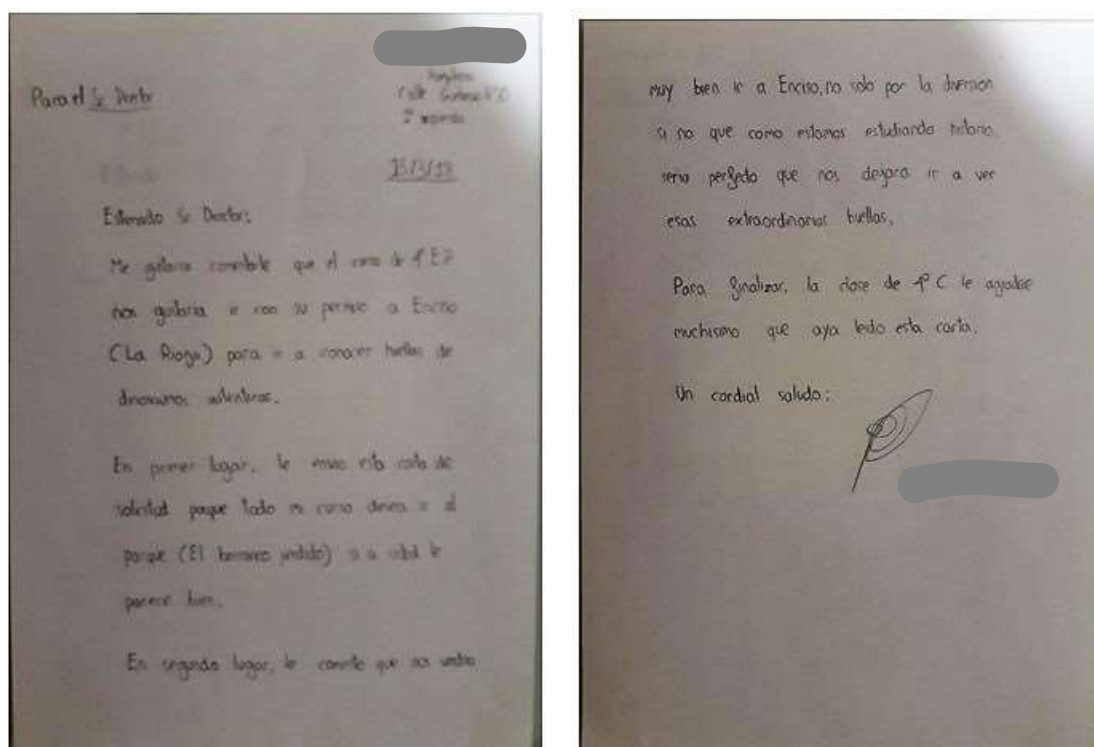 Para el Sr Director
Calle
2º izquierda
Estimado Sr Director:
Me gustaria comentarle que el curso de 4º EP
nos gustaria ir con su permiso a Enciso
(La Rioja) para ir a conocer huellas de
dinosaurios
En primer lugar, le envio esta carta de
solicitud porque todo mi curso desea ir al
parque (El barranco perdido) si a usted le
parece bien.
En segundo lugar, le comento que nos vendria
muy bien ir a Enciso, no solo por la diversion
si no que como estamos estudiando historia,
seria perfecto que nos dejara ir a ver
esas extraordinarias huellas.
Para finalizar, la clase de 4º C le agradece
muchisimo que aya leido esta carta.
Un cordial saludo: